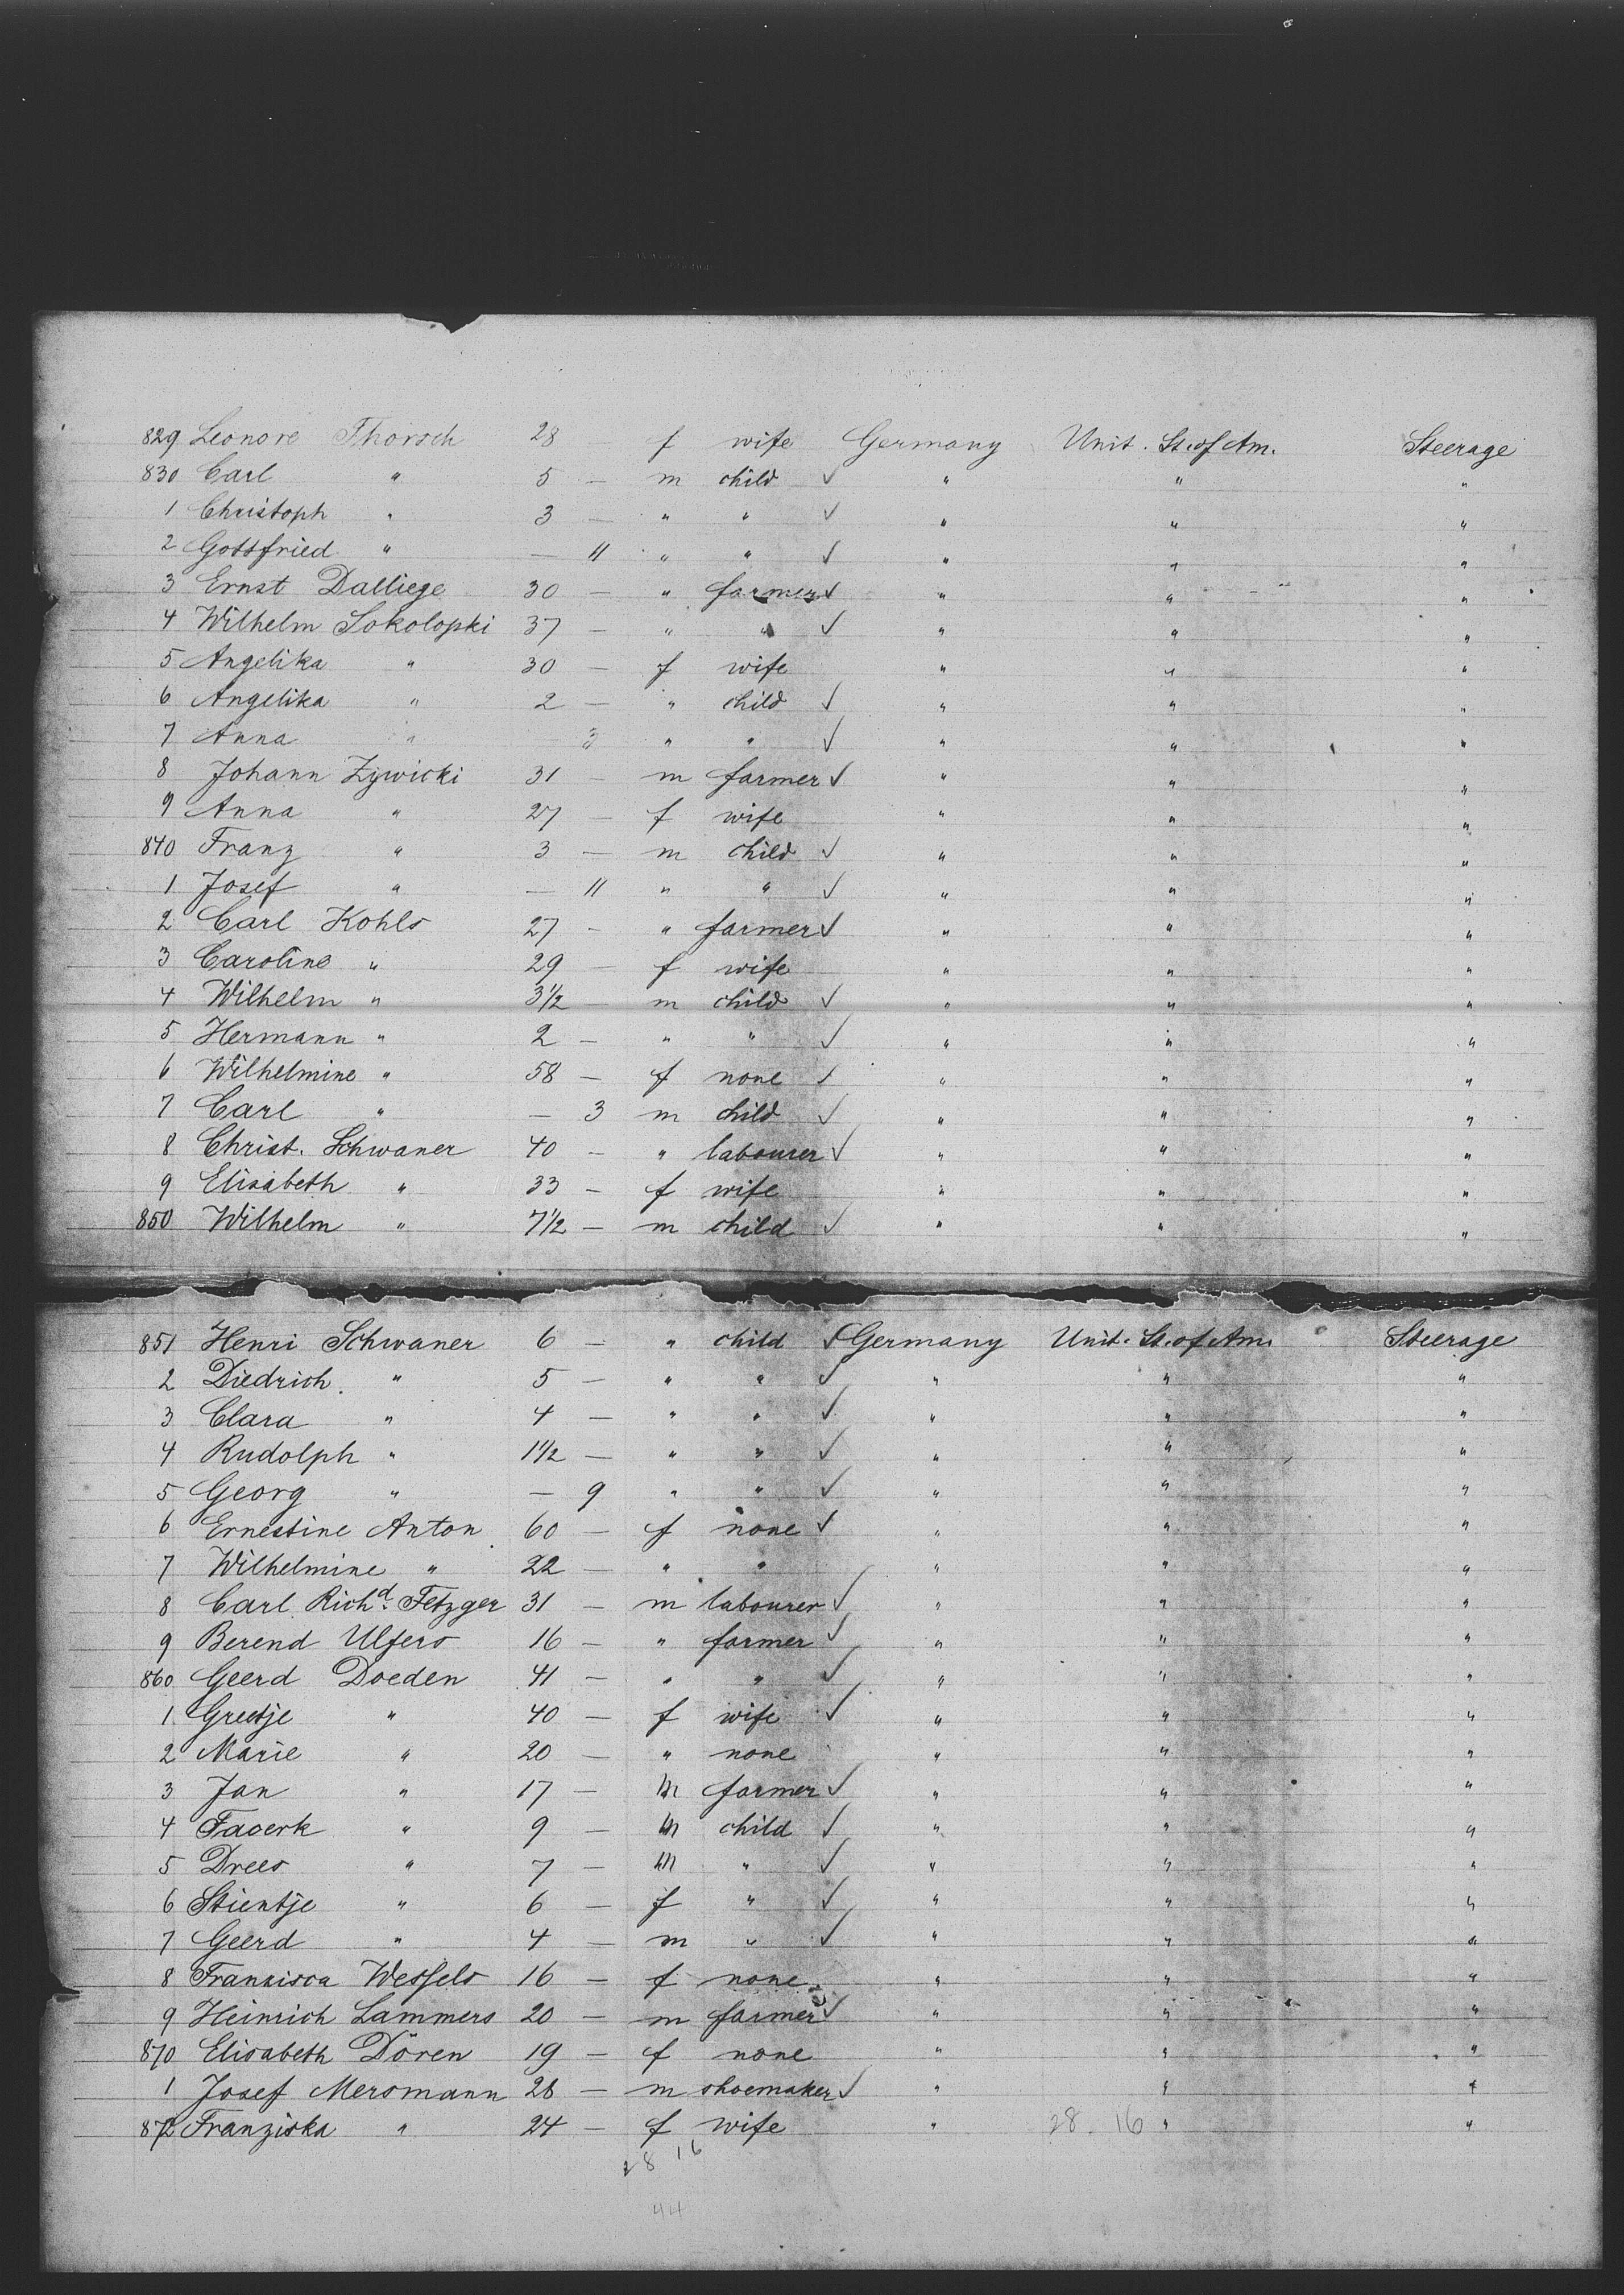 829 Leonore Thorsch 28 f wife Germany Unit. St. of Am. Steerage
830 Carl " 5 — m child ✓ " " "
1 Christoph " 3 — " " ✓ " " "
2 Gottfried " — 11 " " ✓ " " "
3 Ernst Dalliege 30 — " farmer ✓ " " "
4 Wilhelm Sokolopski 37 — " " ✓ " " "
5 Angelika " 30 — f wife " " "
6 Angelika " 2 — " child ✓ " " "
7 Anna " — 3 " " ✓ " " "
8 Johann Zywicki 31 — m farmer ✓ " " "
9 Anna " 27 — f wife " " "
840 Franz " 3 — m child ✓ " " "
1 Josef " — 11 " " ✓ " " "
2 Carl Kohls 27 — " farmer ✓ " " "
3 Caroline " 29 — f wife " " "
4 Wilhelm " 3 1/2 — m child ✓ " " "
5 Hermann " 2 — " " ✓ " " "
6 Wilhelmine " 58 — f none ✓ " " "
7 Carl " — 3 m child ✓ " " "
8 Christ. Schwaner 40 — " labourer ✓ " " "
9 Elisabeth " 33 — f wife " " "
850 Wilhelm " 7 1/2 — m child ✓ " " "
851 Henri Schwaner 6 — " child ✓ Germany Unit. St. of Am. Steerage
2 Diedrich " 5 — " " ✓ " " "
3 Clara " 4 — " " ✓ " " "
4 Rudolph " 1 1/2 — " " ✓ " " "
5 Georg " — 9 " " ✓ " " "
6 Ernestine Anton 60 — f none ✓ " " "
7 Wilhelmine " 22 — " " " " "
8 Carl Richd. Fetzger 31 — m labourer ✓ " " "
9 Berend Ulfers 16 — " farmer ✓ " " "
860 Geerd Doeden 41 — " " ✓ " " "
1 Greetje " 40 — f wife ✓ " " "
2 Marie " 20 — " none " " "
3 Jan " 17 — m farmer ✓ " " "
4 " 9 — m child ✓ " " "
5 Drees " 7 — m " ✓ " " "
6 Stientje " 6 — f " ✓ " " "
7 Geerd " 4 — m " ✓ " " "
8 Franzisca Wessels 16 — f none " " "
9 Heinrich Lammers 20 — m farmer ✓ " " "
870 Elisabeth Dören 19 — f none " " "
1 Josef Mersmann 28 — m shoemaker ✓ " " "
872 Franziska " 24 — f wife " 28 - 16 " "
28 16
44